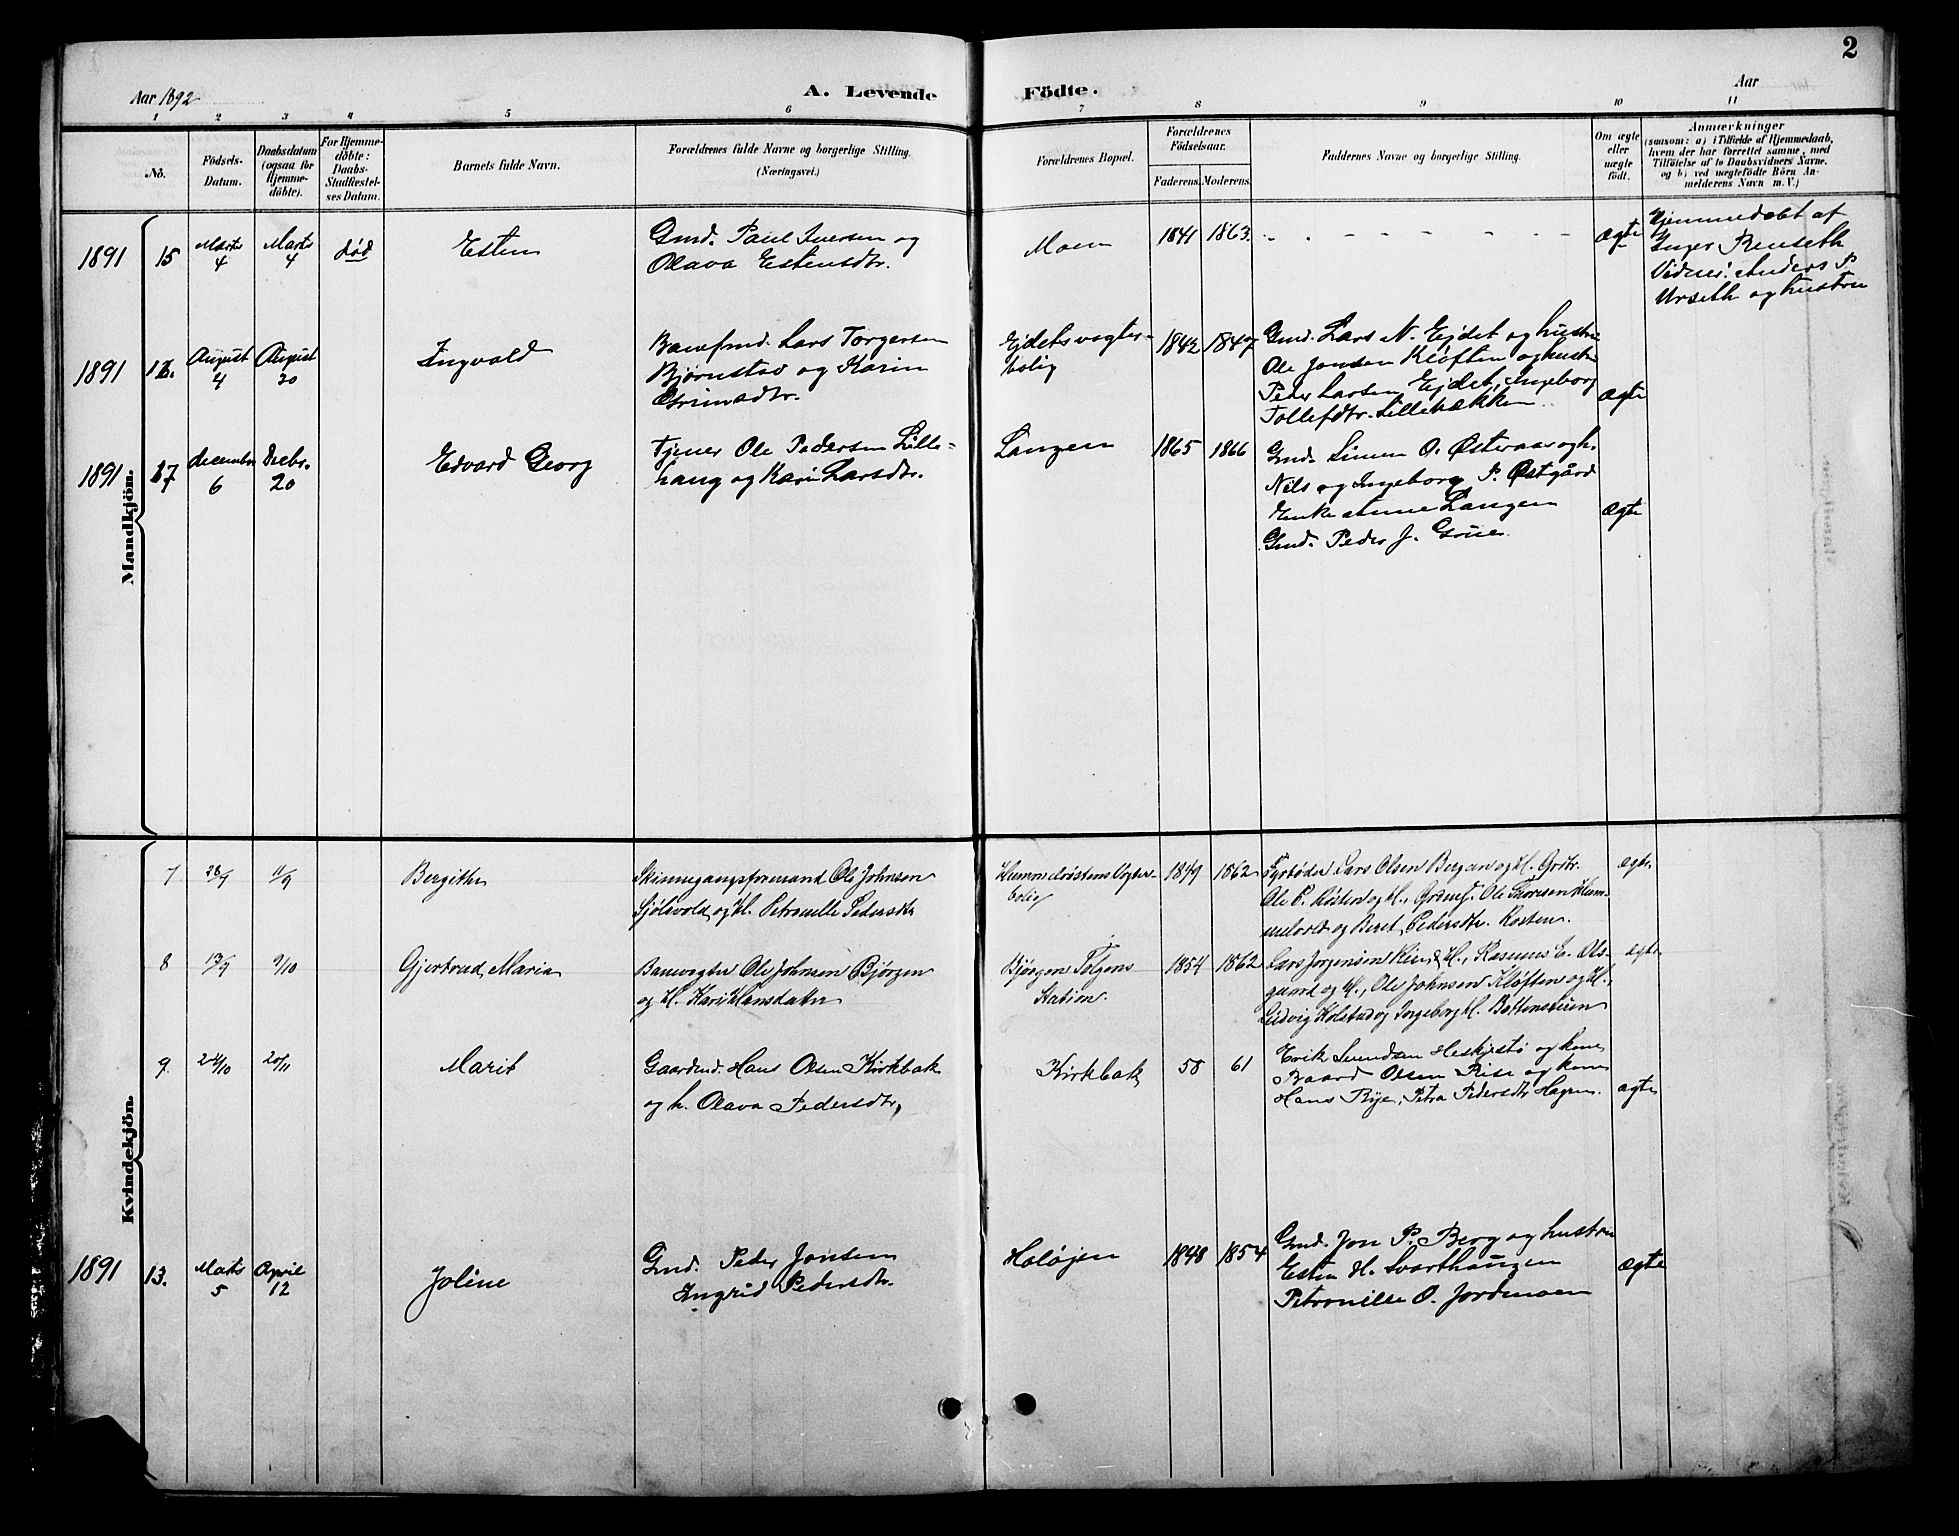 2
Aar 1892
A. Levende Födte.
Aar
1 2 3 4 5 6 7 8 9 10 11
No.
Födsels-Datum.
Daabsdatum (ogsaa for Hjemme-döbte).
For Hjemme-döbte: Daabs-Stadfæstel-ses Datum.
Barnets fulde Navn.
Forældrenes fulde Navne og borgerlige Stilling.
(Næringsvei.)
Forældrenes Bopæl.
Forældrenes Födselsaar.
Faderens. Moderens.
Faddernes Navne og borgerlige Stilling.
Om ægte eller uægte födt.
Anmærkninger
(saasom: a) i Tilfælde af Hjemmedaab,
hvem der har forrettet samme, med
Tilföielse af to Daabsvidners Navne.
og b) ved uægtefödte Börn An-
melderens Navn m. V.)
Mandkjön.
1891 15 Marts 4 Marts 4 død Esten
Gmd. Paul Iversen og
Olava Estensdtr.
Moen 1841 1863. ægte
Hjemmedøbt af
Inger Renseth
Vidner: Anders P.
Urseth og hustru
1891 16. August 4 August 30 Ingvald
Baneformd. Lars Torgersen
Bjørnstad og Karin
Grimsdtr.
Ejdets vogter-
bolig
1842 1847
Gmd. Lars N. Ejdet og hustru
Ole Jonsen Kløften og hustru
Peder Larsen Ejdet, Ingeborg
Tollefdtr. Lillebækken
Ægte
1891 17 December 6 Decbr. 20 Edvard Georg
Tjener Ole Pedersen Lille-
haug og Kari Larsdtr.
Langen 1865 1866
Gmd. Simen O. Østeraas og h.
Nils og Ingeborg P. Østgård
Enke Anne Langen
Gmd. Peder J. Grue
Ægte
Kvindekjön.
7 28/7 11/9 Bergithe
Skinnegangsformand Ole Johnsen
Sjølsvold og H. Petronelle Pedersdtr
Hummelrøstens Vogter-
bolig
1849 1862
Fyrbøder Lars Olsen Bergan og H.
Ole P. Røsten og H., Ole Thoresen Hum-
melvold og Beret Pedersdtr. Røsten.
ægte.
8 13/9 9/10 Gjertrud Maria
Banevogter Ole Johnsen Bjørgen
og H. Kari Hansdatter
Bjørgen Tolgens
Station.
1854 1862
Lars Jørgensen Rise & H., Rasmus E. Ols-
gaard og H., Ole Johnsen Kløften og H.,
Ludvig Kolstad og Ingeborg H.
ægte
9. 24/10 20/11 Marit
Gaardmd. Hans Olsen Kirkbak
og h. Olava Pedersdtr,
Kirkbak 58 61
Erik Svendsen og kone
Baard Olsen Rise og kone
Hans Rye, Petra Pedersdtr Hagen.
ægte
1891 13. Marts 5 April 12 Joline
Gmd. Peder Jonsen
Ingrid Pedersdtr.
Holøjen 1848 1854
Gmd. Jon P. Berg og hustru
Esten H. Svarthaugen
Petronille O. Jordmoen
ægte